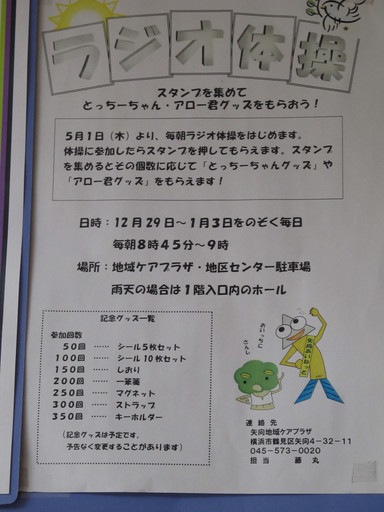 ラジオ体操
スタンプを集めて
とっちーちゃん・アロー君グッズをもらおう！
5月1日（木）より、毎朝ラジオ体操をはじめます。
体操に参加したらスタンプを押してもらえます。スタンプ
を集めるとその個数に応じて「とっちーちゃんグッズ」や
「アロー君グッズ」をもらえます！
日時：12月29日～1月3日をのぞく毎日
毎朝8時45分～9時
場所：地域ケアプラザ・地区センター駐車場
雨天の場合は1階入口内のホール
記念グッズ一覧
参加回数
50回 …… シール5枚セット
100回 …… シール10枚セット
150回 …… しおり
200回 …… 一筆箋
250回 …… マグネット
300回 …… ストラップ
350回 …… キーホルダー
（記念グッズは予定です。
予告なく変更することがあります）
おいっちに
さんし
連絡先
矢向地域ケアプラザ
横浜市鶴見区矢向4-32-11
045-573-0020
担当 藤丸